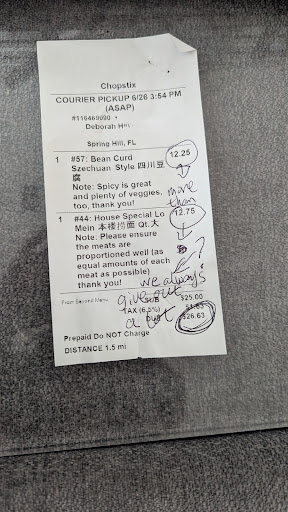 Chopstix
COURIER PICKUP 6/26 3:54 PM
(ASAP)
Deborah
Spring Hill, FL
1 #57: Bean Curd 12.25
Szechuan Style 四川豆
腐
Note: Spicy is great
and plenty of veggies,
too, thank you!
more
than
1 #44: House Special Lo 12.75
Mein 本楼捞面 Qt.大
Note: Please ensure
the meats are
proportioned well (as
equal amounts of each
meat as possible)
thank you!
?
we always
give out
a lot
From Second Menu
SUB $25.00
TAX (6.5%)
DUE $26.63
Prepaid Do NOT Charge
DISTANCE 1.5 mi